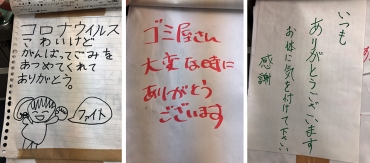 コロナウイルス
こわいけど
がんばってごみを
あつめてくれて
ありがとう。
ファイト
ゴミ屋さん
大変な時に
ありがとう
ございます
いつも
ありがとうございます
お体に気を付けて下さい
感謝